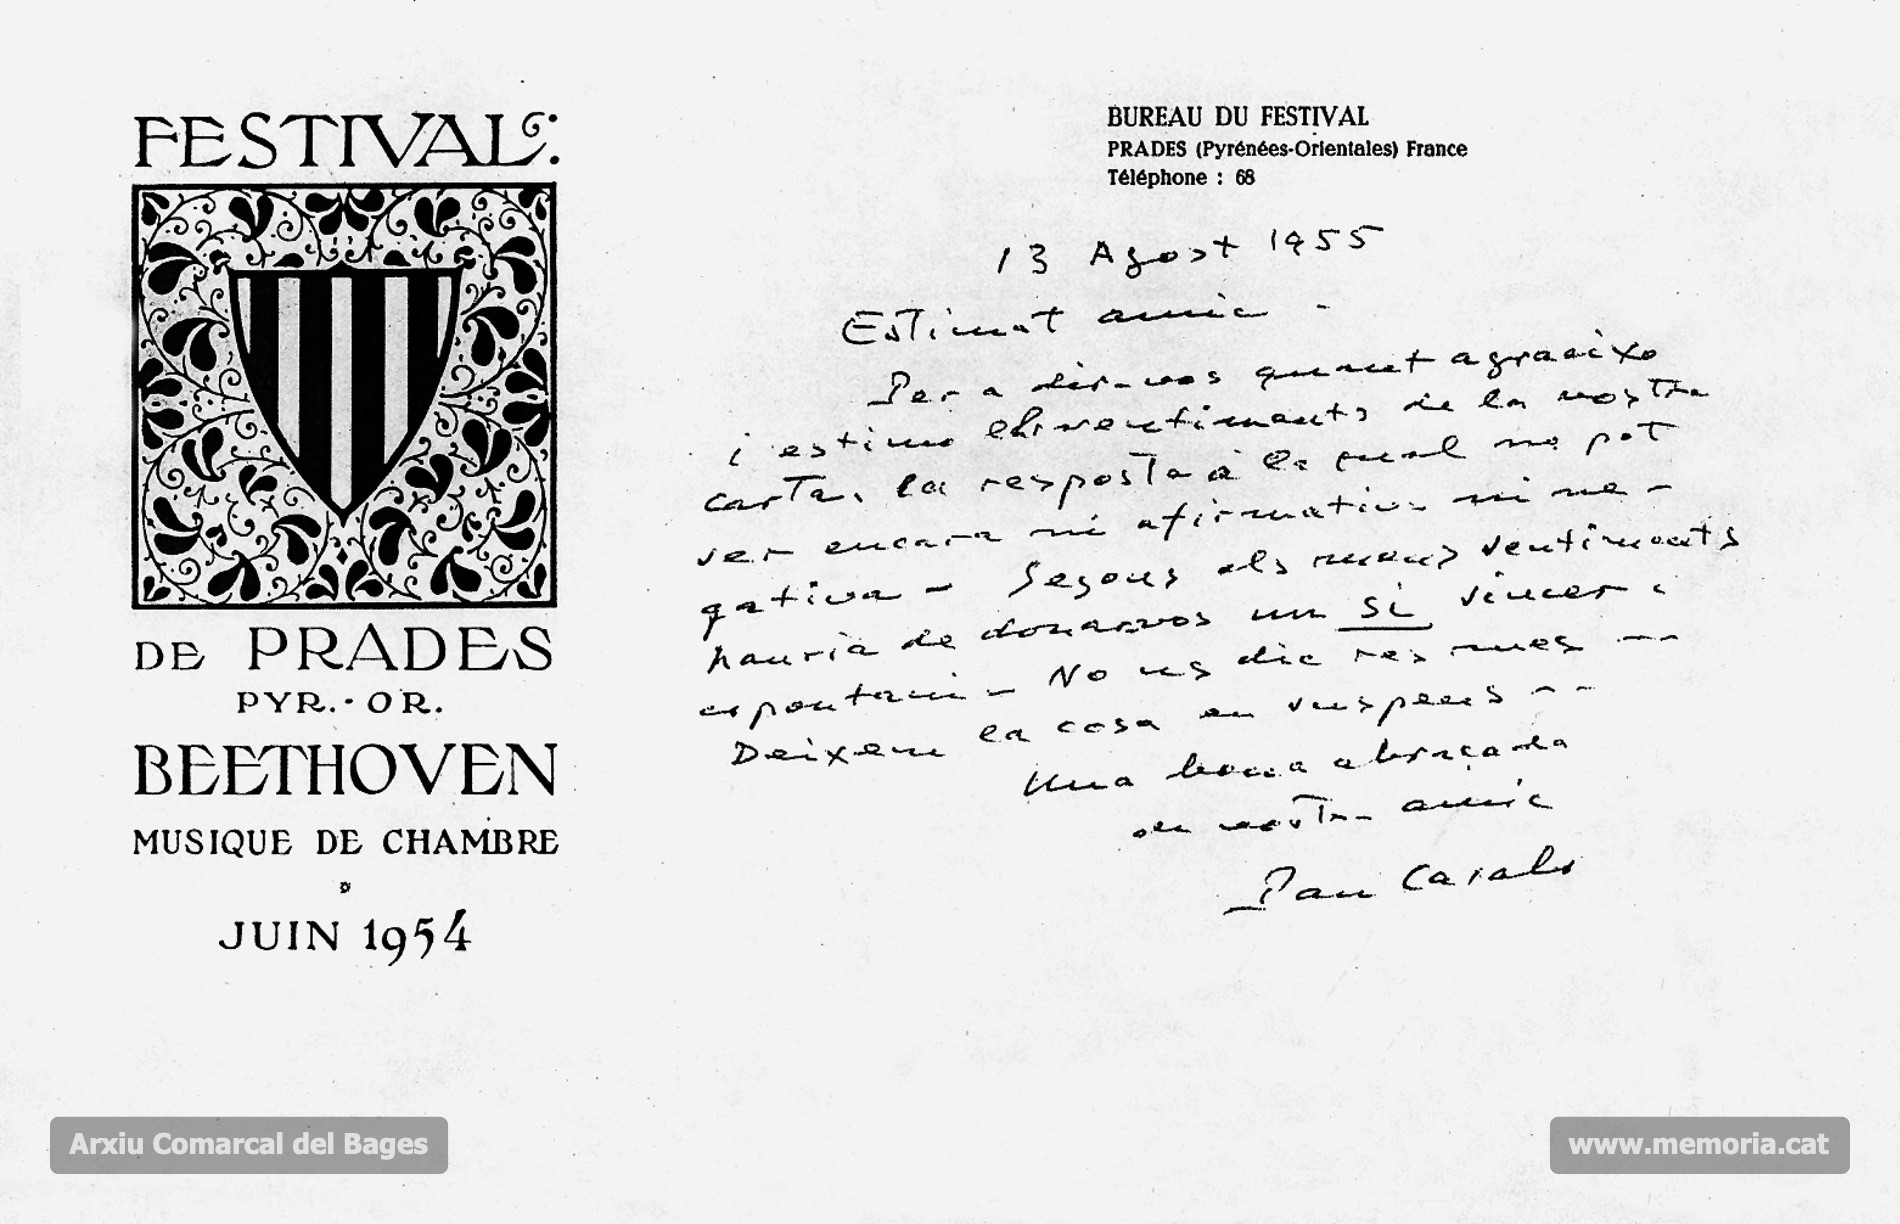 FESTIVAL:
DE PRADES
PYR.·OR.
BEETHOVEN
MUSIQUE DE CHAMBRE
JUIN 1954
BUREAU DU FESTIVAL
PRADES (Pyrénées-Orientales) France
Téléphone : 68
13 Agost 1955
Estimat amic -
Per a dir-vos quant agraeixo
i estimo els sentiments de la vostra
carta, la resposta a la cual no pot
ser encara ni afirmativa ni ne-
gativa - Segons els meus sentiments
hauria de donarvos un si sincer i
espontani - No us dic res mes --
Deixem la cosa en suspens --
Una bona abraçada
del vostre amic
Pau Casals
Arxiu Comarcal del Bages
www.memoria.cat